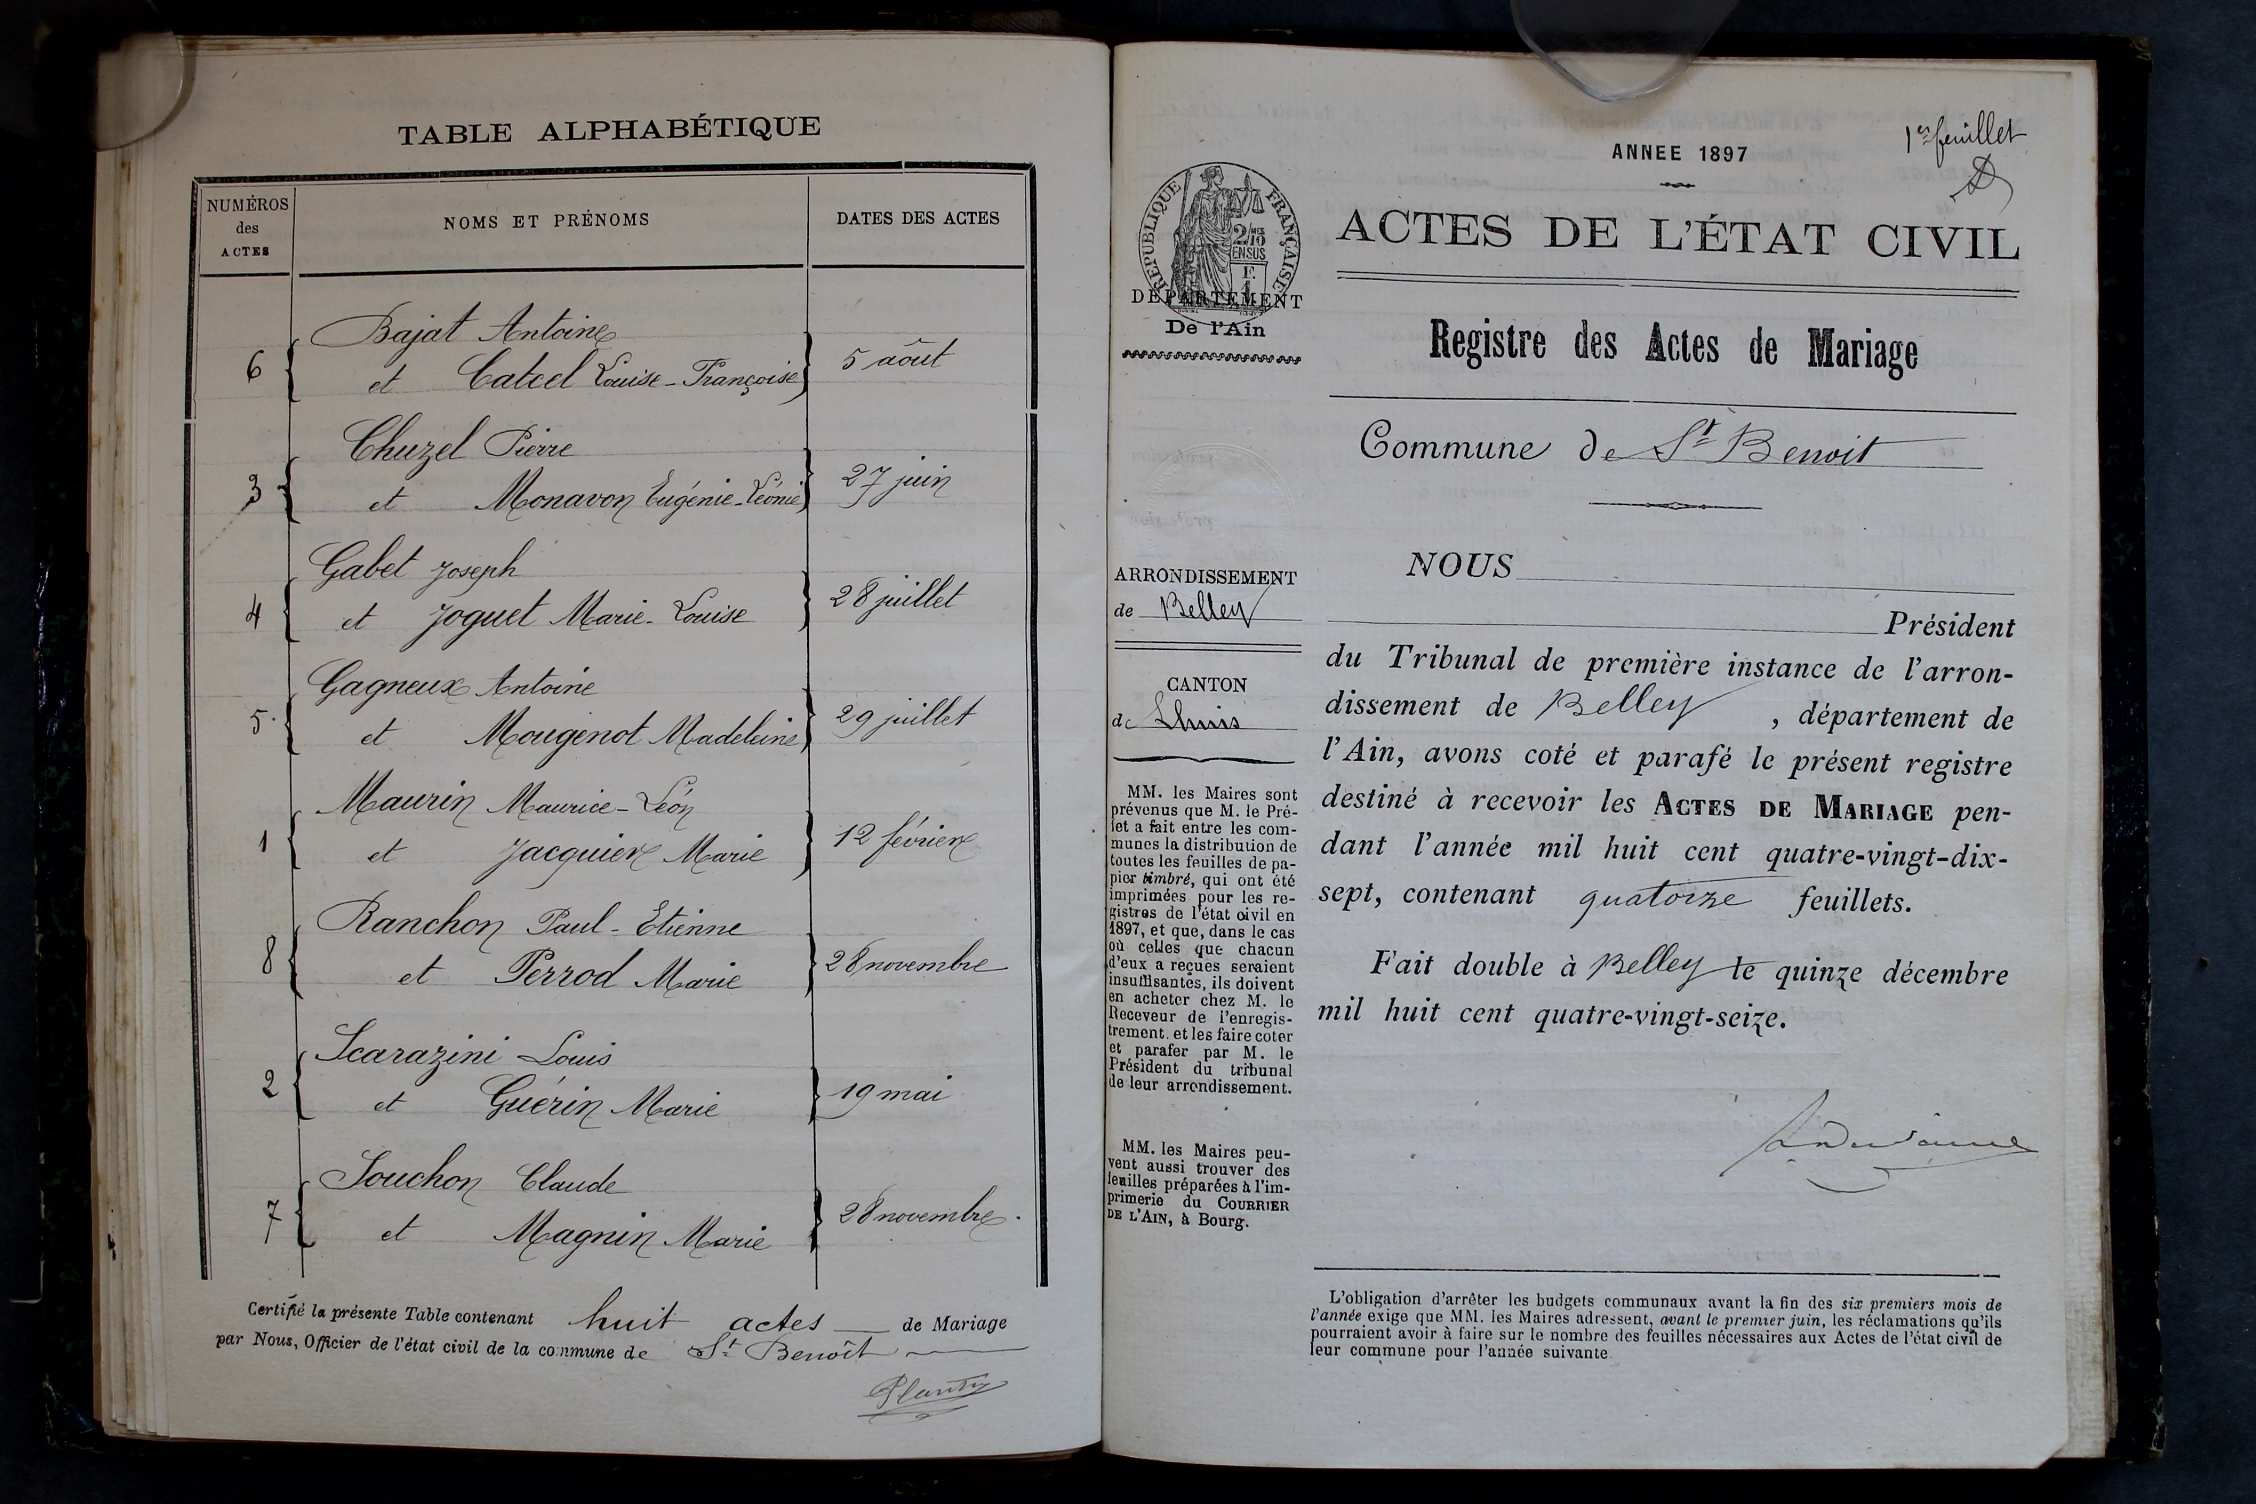 TABLE ALPHABÉTIQUE
NUMÉROS
des
ACTES
NOMS ET PRÉNOMS
DATES DES ACTES
Bajat Antoine
6 et Catcel Louise-Françoise 5 aôut
Chuzel Pierre
3 et Monavon Eugénie-Léonie 27 juin
Gabet Joseph
4 et Joguet Marie-Louise 28 juillet
Gagneux Antoine
5 et Mougenot Madeleine 29 juillet
Maurin Maurice-Léon
1 et Jacquier Marie 12 février
Ranchon Paul-Etienne
8 et Perrod Marie 28 novembre
Scarazini Louis
2 et Guérin Marie 19 mai
Souchon Claude
7 et Magnin Marie 28 novembre.
Certifié la présente Table contenant huit actes de Mariage
par Nous, Officier de l'état civil de la commune de St Benoît
1er feuillet
ANNEE 1897
RÉPUBLIQUE FRANÇAISE
2/10 MES
EN SUS
DÉPARTEMENT
De l'Ain
ACTES DE L'ÉTAT CIVIL
Registre des Actes de Mariage
Commune de St Benoit
ARRONDISSEMENT
de Belley
CANTON
de Lhuis
MM. les Maires sont
prévenus que M. le Pré-
fet a fait entre les com-
munes la distribution de
toutes les feuilles de pa-
pier timbré, qui ont été
imprimées pour les re-
gistres de l'état civil en
1897, et que, dans le cas
où celles que chacun
d'eux a reçues seraient
insuffisantes, ils doivent
en acheter chez M. le
Receveur de l'enregis-
trement. et les faire coter
et parafer par M. le
Président du tribunal
de leur arrondissement.
MM. les Maires peu-
vent aussi trouver des
feuilles préparées à l'im-
primerie du COURRIER
DE L'AIN, à Bourg.
NOUS
Président
du Tribunal de première instance de l'arron-
dissement de Belley, département de
l'Ain, avons coté et parafé le présent registre
destiné à recevoir les ACTES DE MARIAGE pen-
dant l'année mil huit cent quatre-vingt-dix-
sept, contenant quatorze feuillets.
Fait double à Belley le quinze décembre
mil huit cent quatre-vingt-seize.
L'obligation d'arrêter les budgets communaux avant la fin des six premiers mois de
l'année exige que MM. les Maires adressent, avant le premier juin, les réclamations qu'ils
pourraient avoir à faire sur le nombre des feuilles nécessaires aux Actes de l'état civil de
leur commune pour l'année suivante.